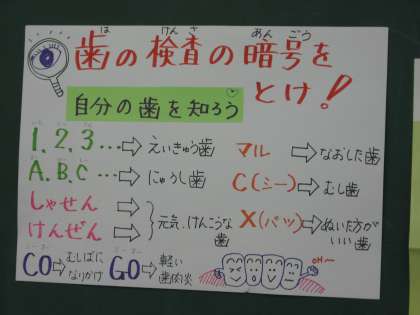 歯の検査の暗号を
とけ！
自分の歯を知ろう
1.2.3…⇨えいきゅう歯
A.B.C…⇨にゅうし歯
しゃせん⇨
けんぜん⇨
元気、けんこうな
歯
CO⇨むしばに
なりかけ
GO⇨軽い
歯肉炎
マル⇨なおした歯
C(シー)⇨むし歯
X(バツ)⇨ぬいた方が
いい歯
OH～